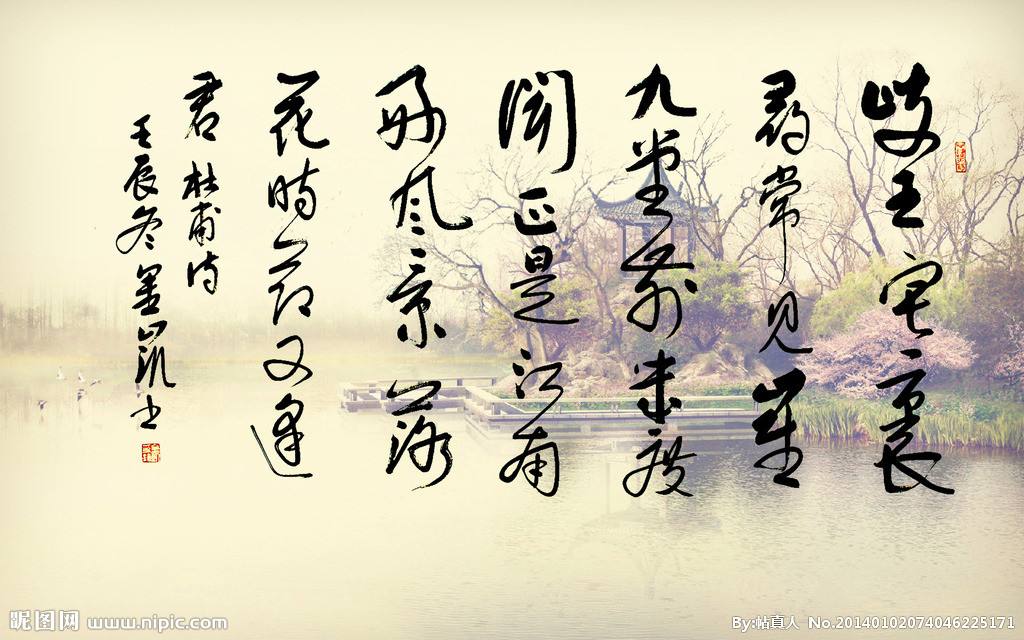 歧王宅裏
尋常見崔
九堂前幾度
聞正是江南
好風景落
花時節又逢
君 杜甫詩
壬辰冬墨書
昵图网 www.nipic.com
By:帖真人 No.20140102074046225171